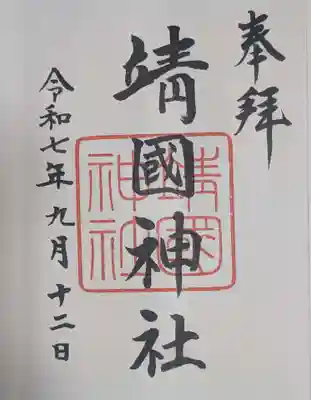 奉拝
靖國神社
靖国
神社
令和七年九月十二日